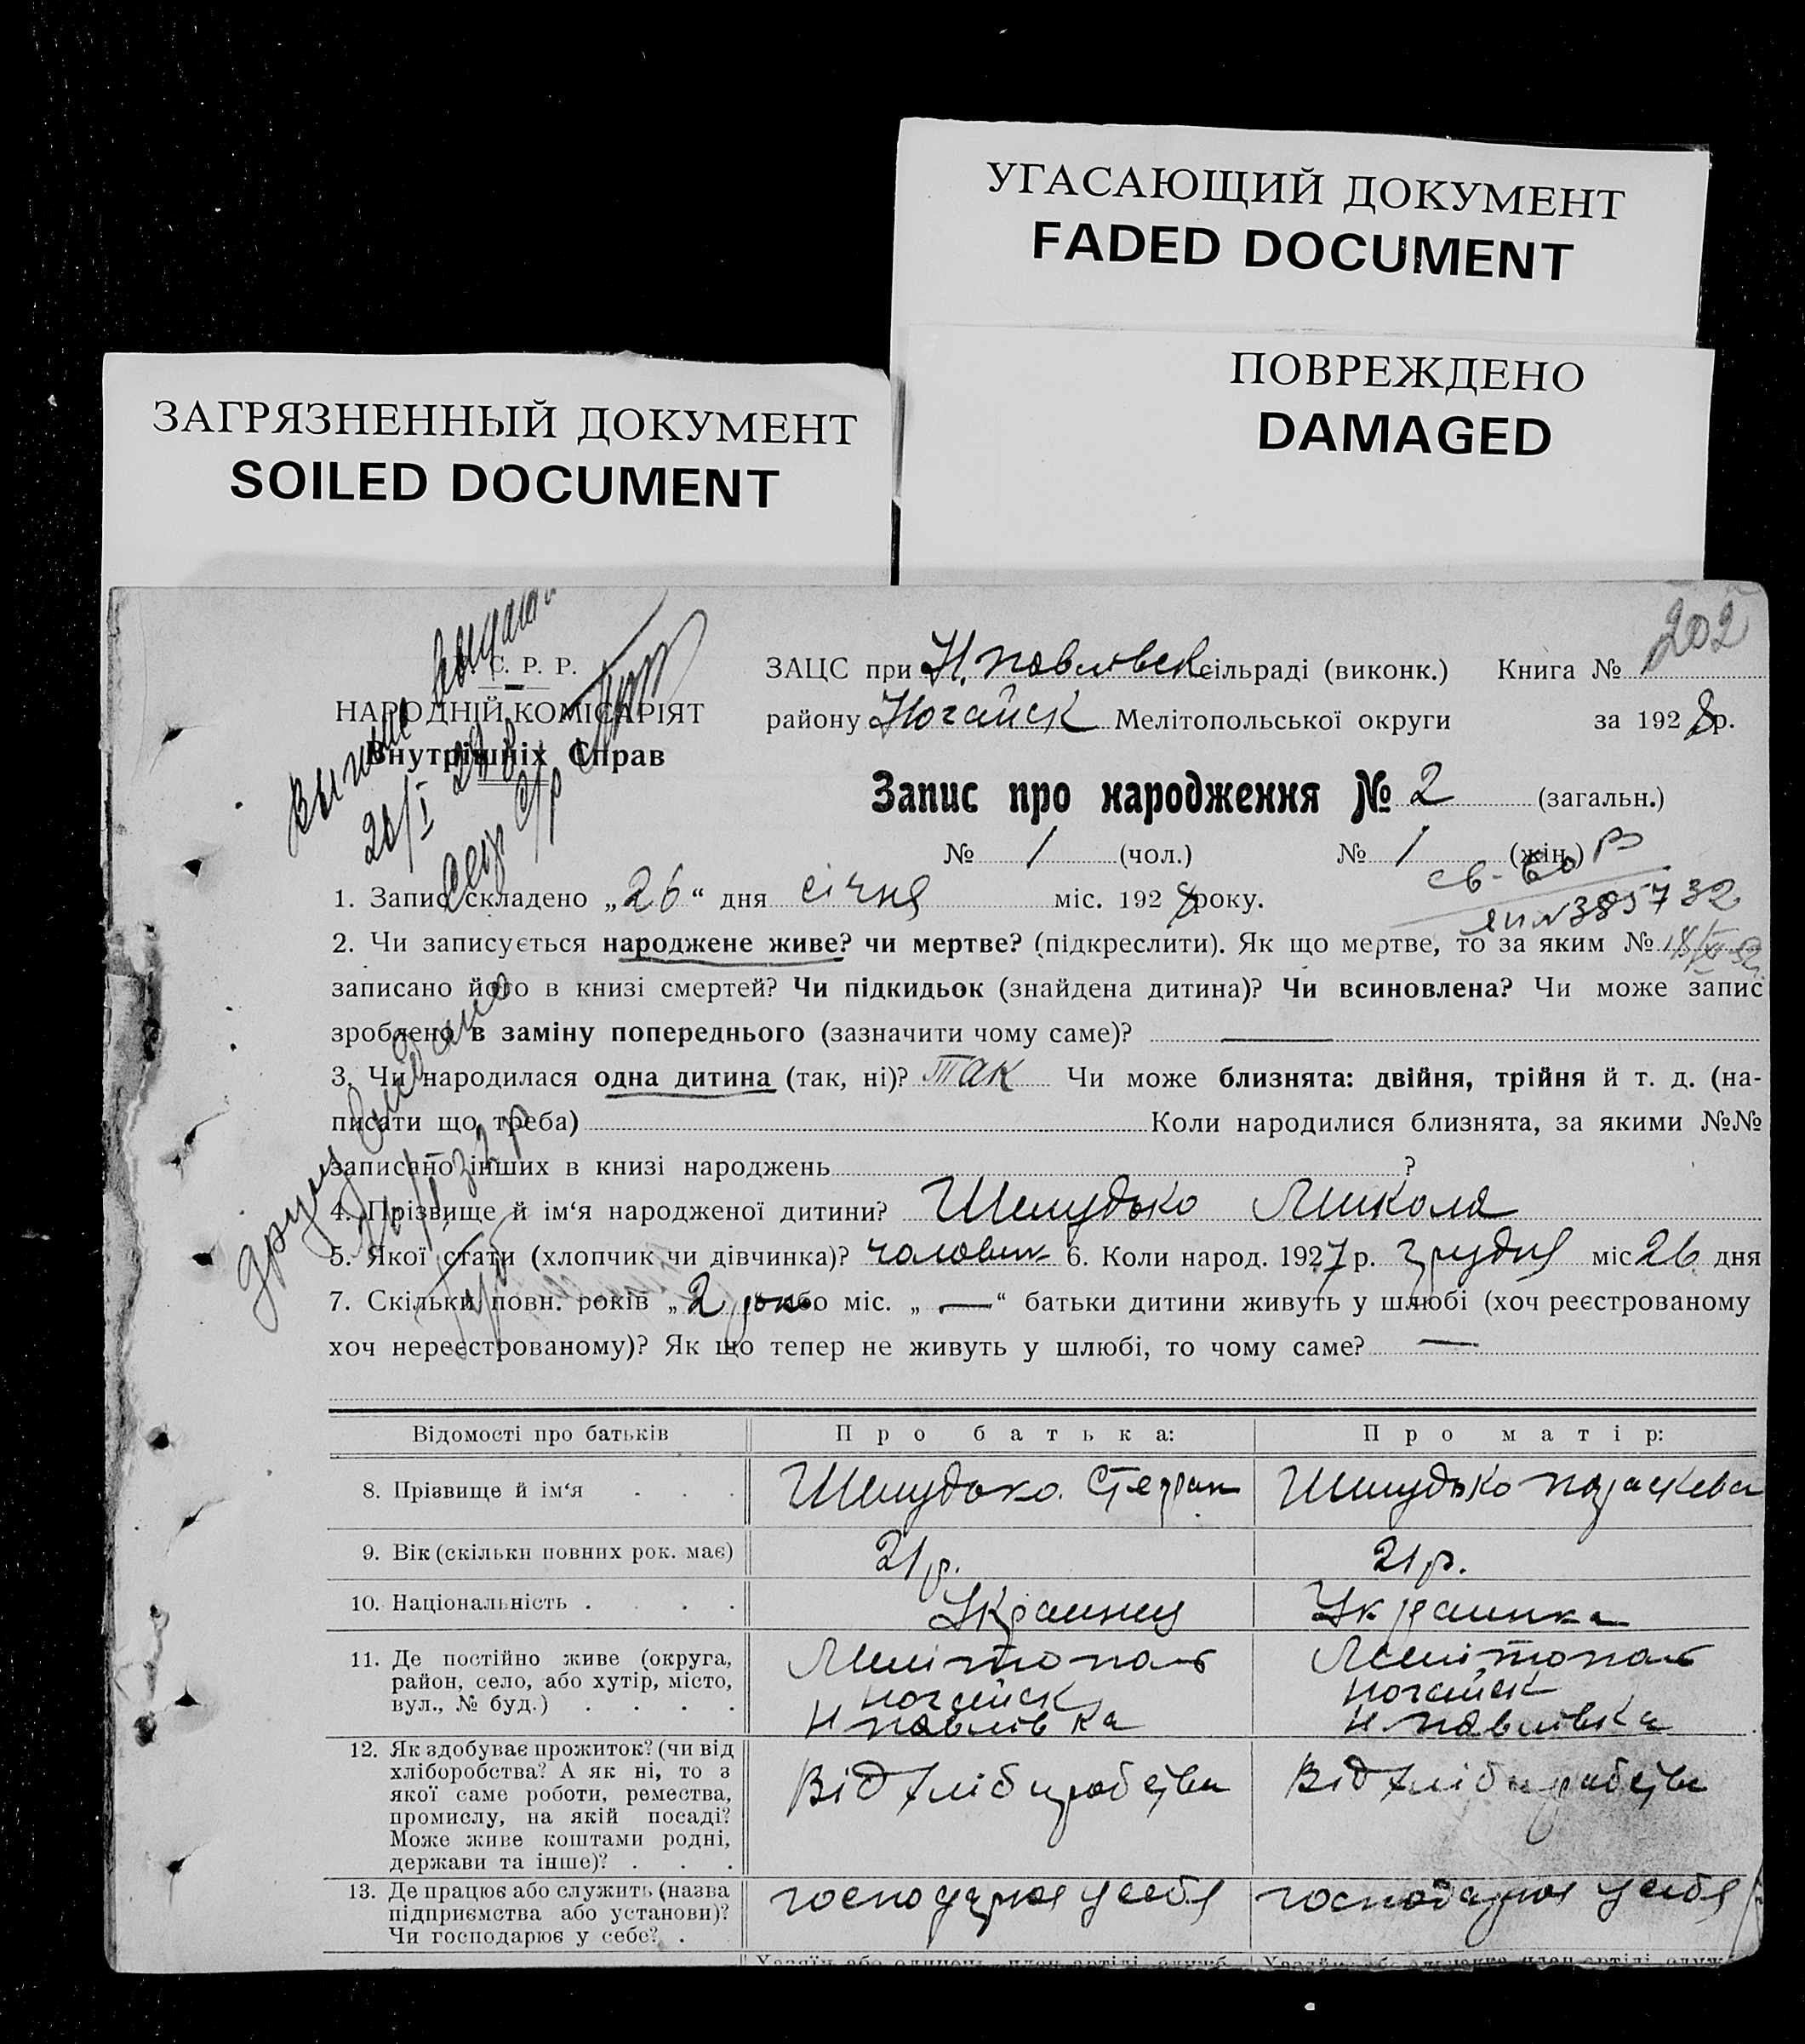 УГАСАЮЩИЙ ДОКУМЕНТ
FADED DOCUMENT
ПОВРЕЖДЕНО
DAMAGED
ЗАГРЯЗНЕННЫЙ ДОКУМЕНТ
SOILED DOCUMENT
202
С. Р. Р.
НАРОДНІЙ КОМІСАРІЯТ
Внутрішніх Справ
ЗАЦС при Н. павловск сільраді (виконк.) Книга №
району Ногайск Мелітопольської округи за 1928 р.
Запис про народження № 2 (загальн.)
№ 1 (чол.) № 1 (жін.)
1. Запис складено „26“ дня січня міс. 1928 року.
№385732
2. Чи записується народжене живе? чи мертве? (підкреслити). Як що мертве, то за яким №
записано його в книзі смертей? Чи підкидьок (знайдена дитина)? Чи всиновлена? Чи може запис
зроблено в заміну попереднього (зазначити чому саме)? —
3. Чи народилася одна дитина (так, ні)? так Чи може близнята: двійня, трійня й т. д. (на-
писати що треба) Коли народилися близнята, за якими №№
записано інших в книзі народжень ?
4. Прізвище й ім‘я народженої дитини? Шелудько Микола
5. Якої стати (хлопчик чи дівчинка)? 6. Коли народ. 1927 р. грудня міс 26 дня
7. Скільки повн. років „2 або міс. „ — “ батьки дитини живуть у шлюбі (хоч реєстрованому
хоч нереєстрованому)? Як що тепер не живуть у шлюбі, то чому саме? —
Відомості про батьків Про батька: Про матір:
8. Прізвище й ім‘я . . . Шелудько Стефан Шелудько Параскева
9. Вік (скільки повних рок. має) 21 р. 21 р.
10. Національність . . . . Украинец Украинка
11. Де постійно живе (округа,
район, село, або хутір, місто,
вул., № буд.) . . . .
Мелітополь
Ногайск
Н павлівка
Мелітополь
Ногайск
Н павлівка
12. Як здобуває прожиток? (чи від
хліборобства? А як ні, то з
якої саме роботи, ремества,
промислу, на якій посаді?
Може живе коштами родні,
держави та інше)? . . .
Від хліборобства
Від хліборобства
13. Де працює або служить (назва
підприємства або установи)?
Чи господарює у себе? .
господарює у себя
господарює у себя